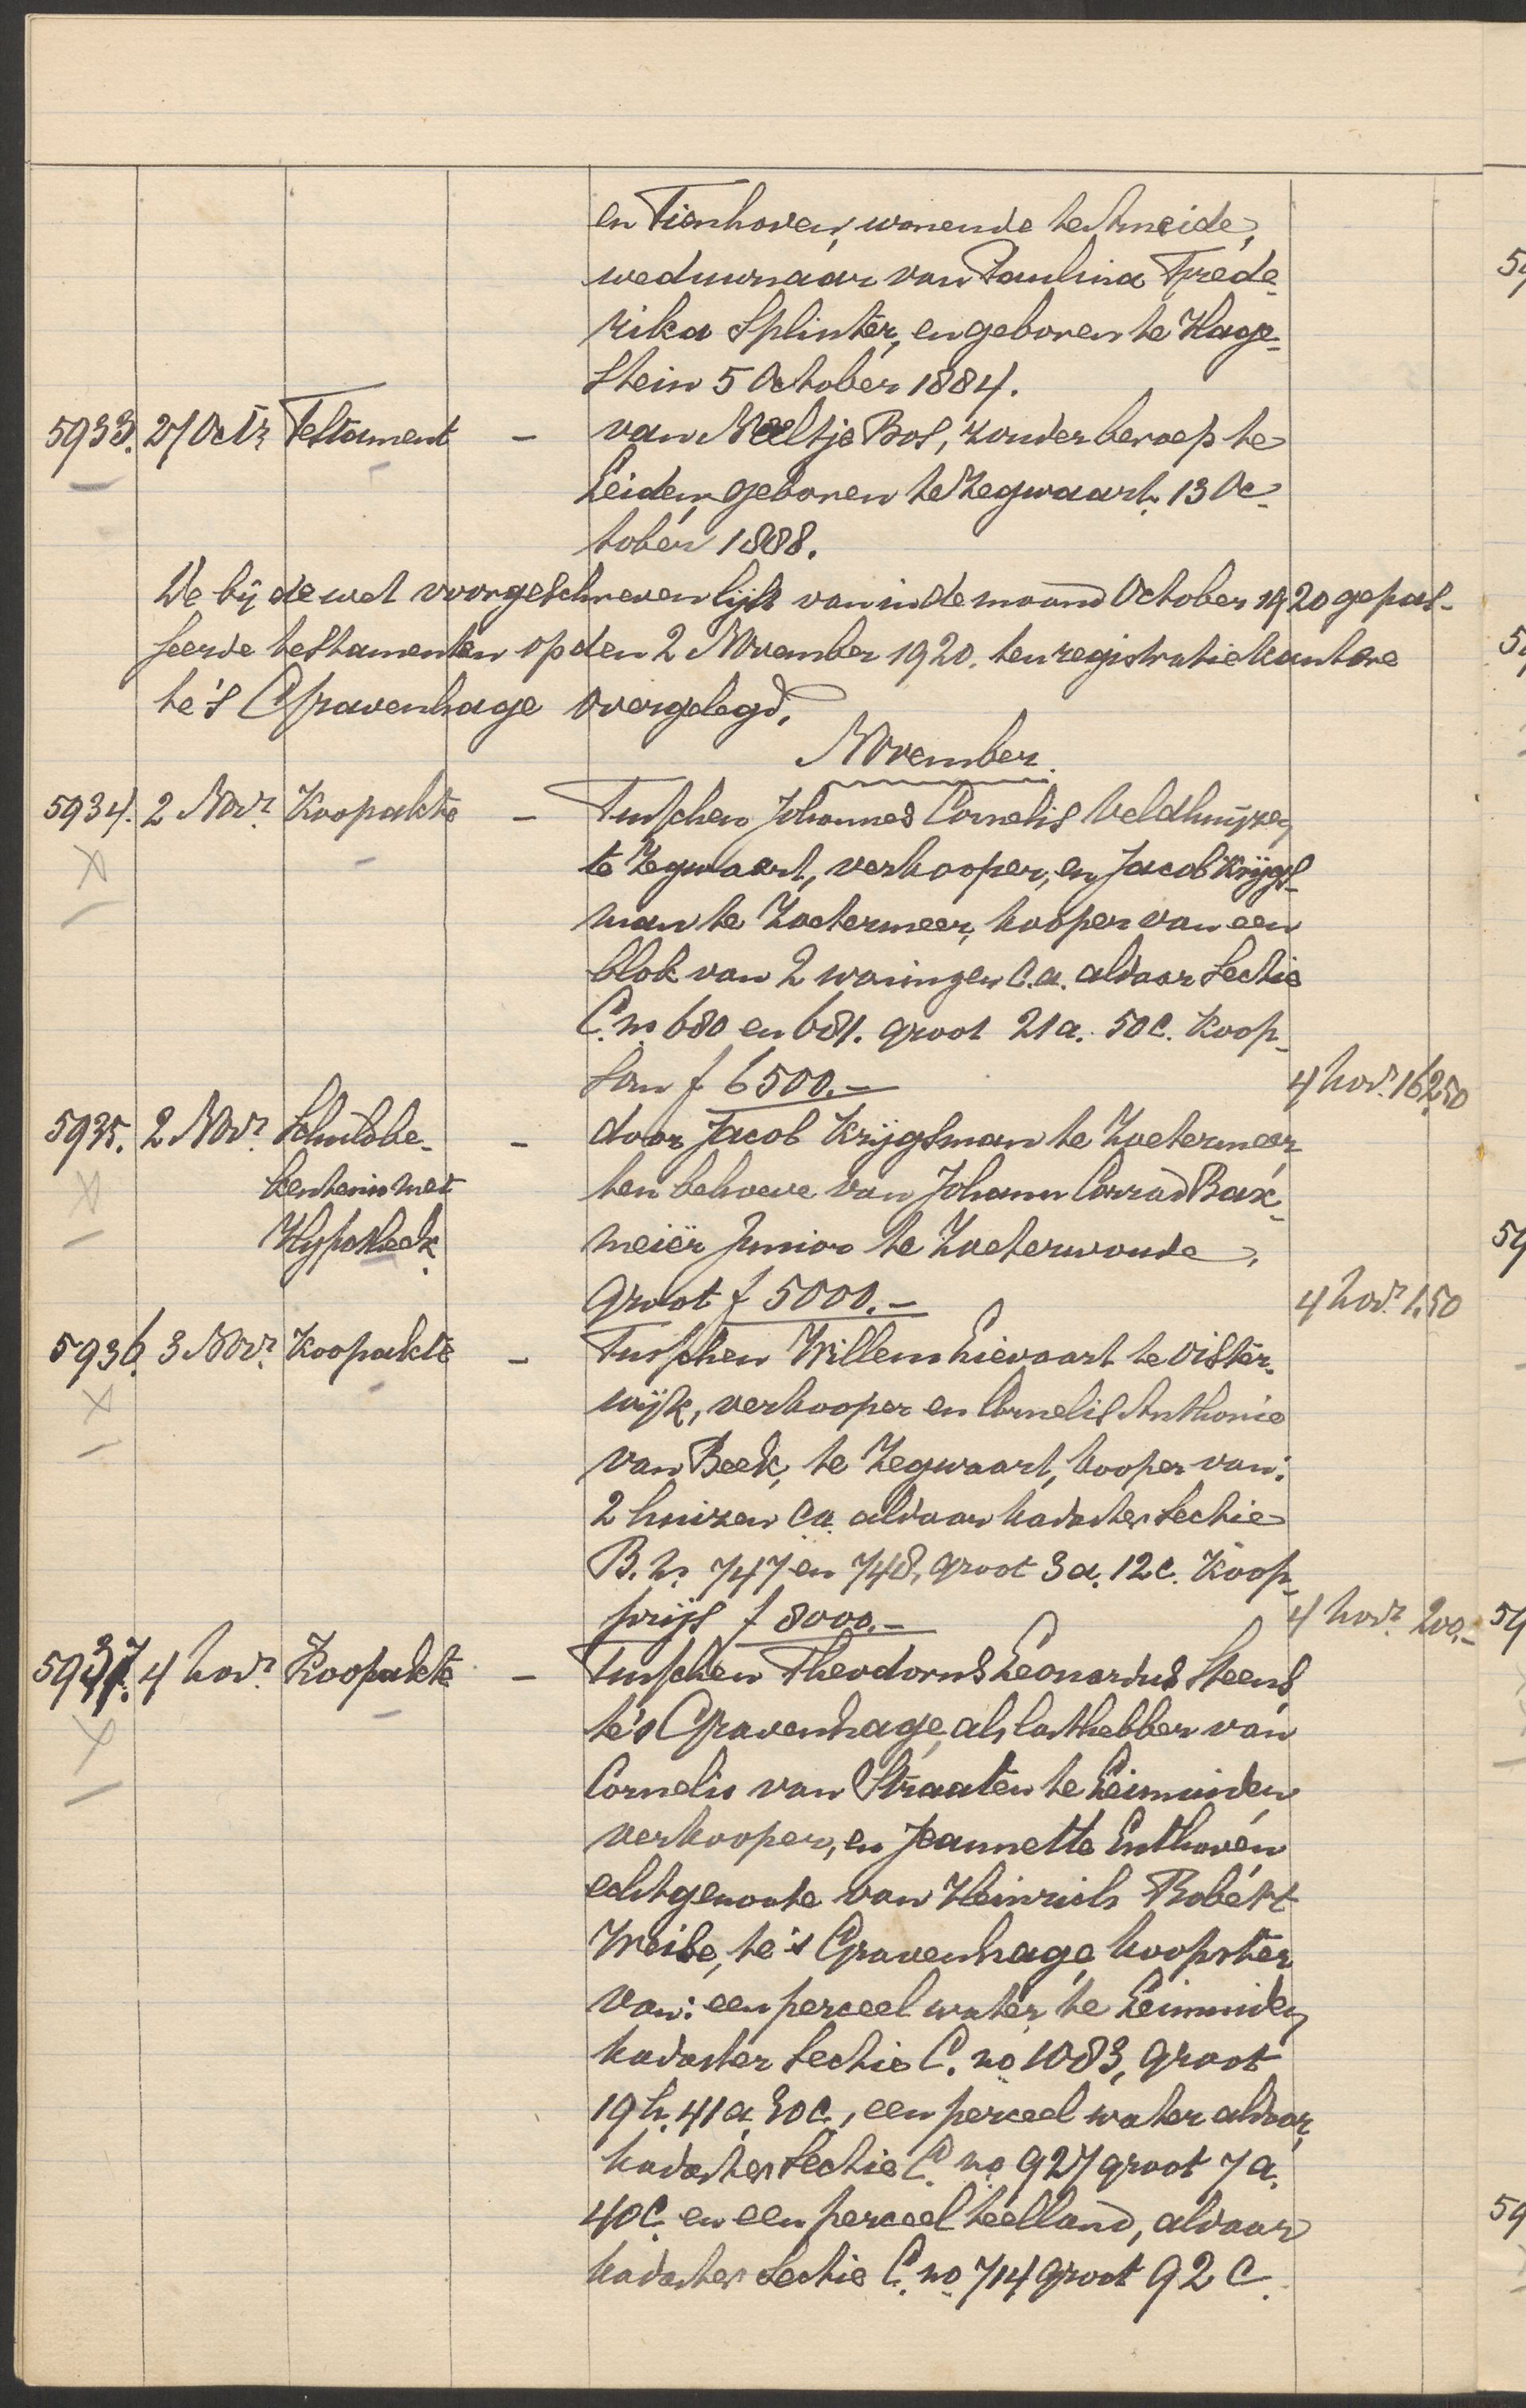 en Tienhoven, wonende te Ameide,
weduwnaar van Paulina Frede-
rika Splinter, en geboren te Hage-
stein 5 October 1884.
5933. 27 Octr Testament - van Neeltje Bos, zonder beroep te
Leiden, geboren te Zegwaart, 13 Oc-
tober 1888.
De bij de wet voorgeschreven lijst van in de maand October 1920 gepas-
seerde testamenten op den 2 November 1920. ten registratiekantore
te 's Gravenhage overgelegd.
November.
5934. 2 Novr. Koopakte - Tusschen Johannes Cornelis Veldhuijzen
te Zegwaart, verkooper, en Jacob Krijgs-
man te Zoetermeer, kooper van een
blok van 2 woningen c.a. aldaar Sectie
C. no 680 en 681. groot 21 a. 50 c. Koop-
som f 6500.- 4 Novr. 162.50
5935. 2 Novr. Schuldbe- - door Jacob Krijgsman te Zoetermeer
kentenis met ten behoeve van Johann Conrad Bax-
Hypotheek. meiër Junior te Zoeterwoude,
groot f 5000.- 4 Novr. 1.50
5936. 3 Novr. Koopakte - Tusschen Willem Lievaart te Oister-
wijk, verkooper en Cornelis Anthonie
van Beek, te Zegwaart, kooper van:
2 huizen c.a. aldaar kadaster Sectie
B. no. 747 en 748, groot 3 a. 12 c. Koop-
prijs f 8000.- 4 Novr. 200.-
5937. 4 Novr. Koopakte - Tusschen Theodorus Leonardus Steens,
te 's Gravenhage, als lasthebber van
Cornelis van Straaten te Leimuiden,
verkooper, en Jeannette Enthoven
echtgenoote van Heinrich Robert
Weise, te 's Gravenhage, koopster
van: een perceel water te Leimuiden
kadaster Sectie C. no 1083, groot
19 h. 41 a. 30 c., een perceel water aldaar,
kadaster Sectie C. no 927 groot 7 a.
40 c. en een perceel teelland, aldaar
kadaster Sectie C. no 714 groot 92 c.